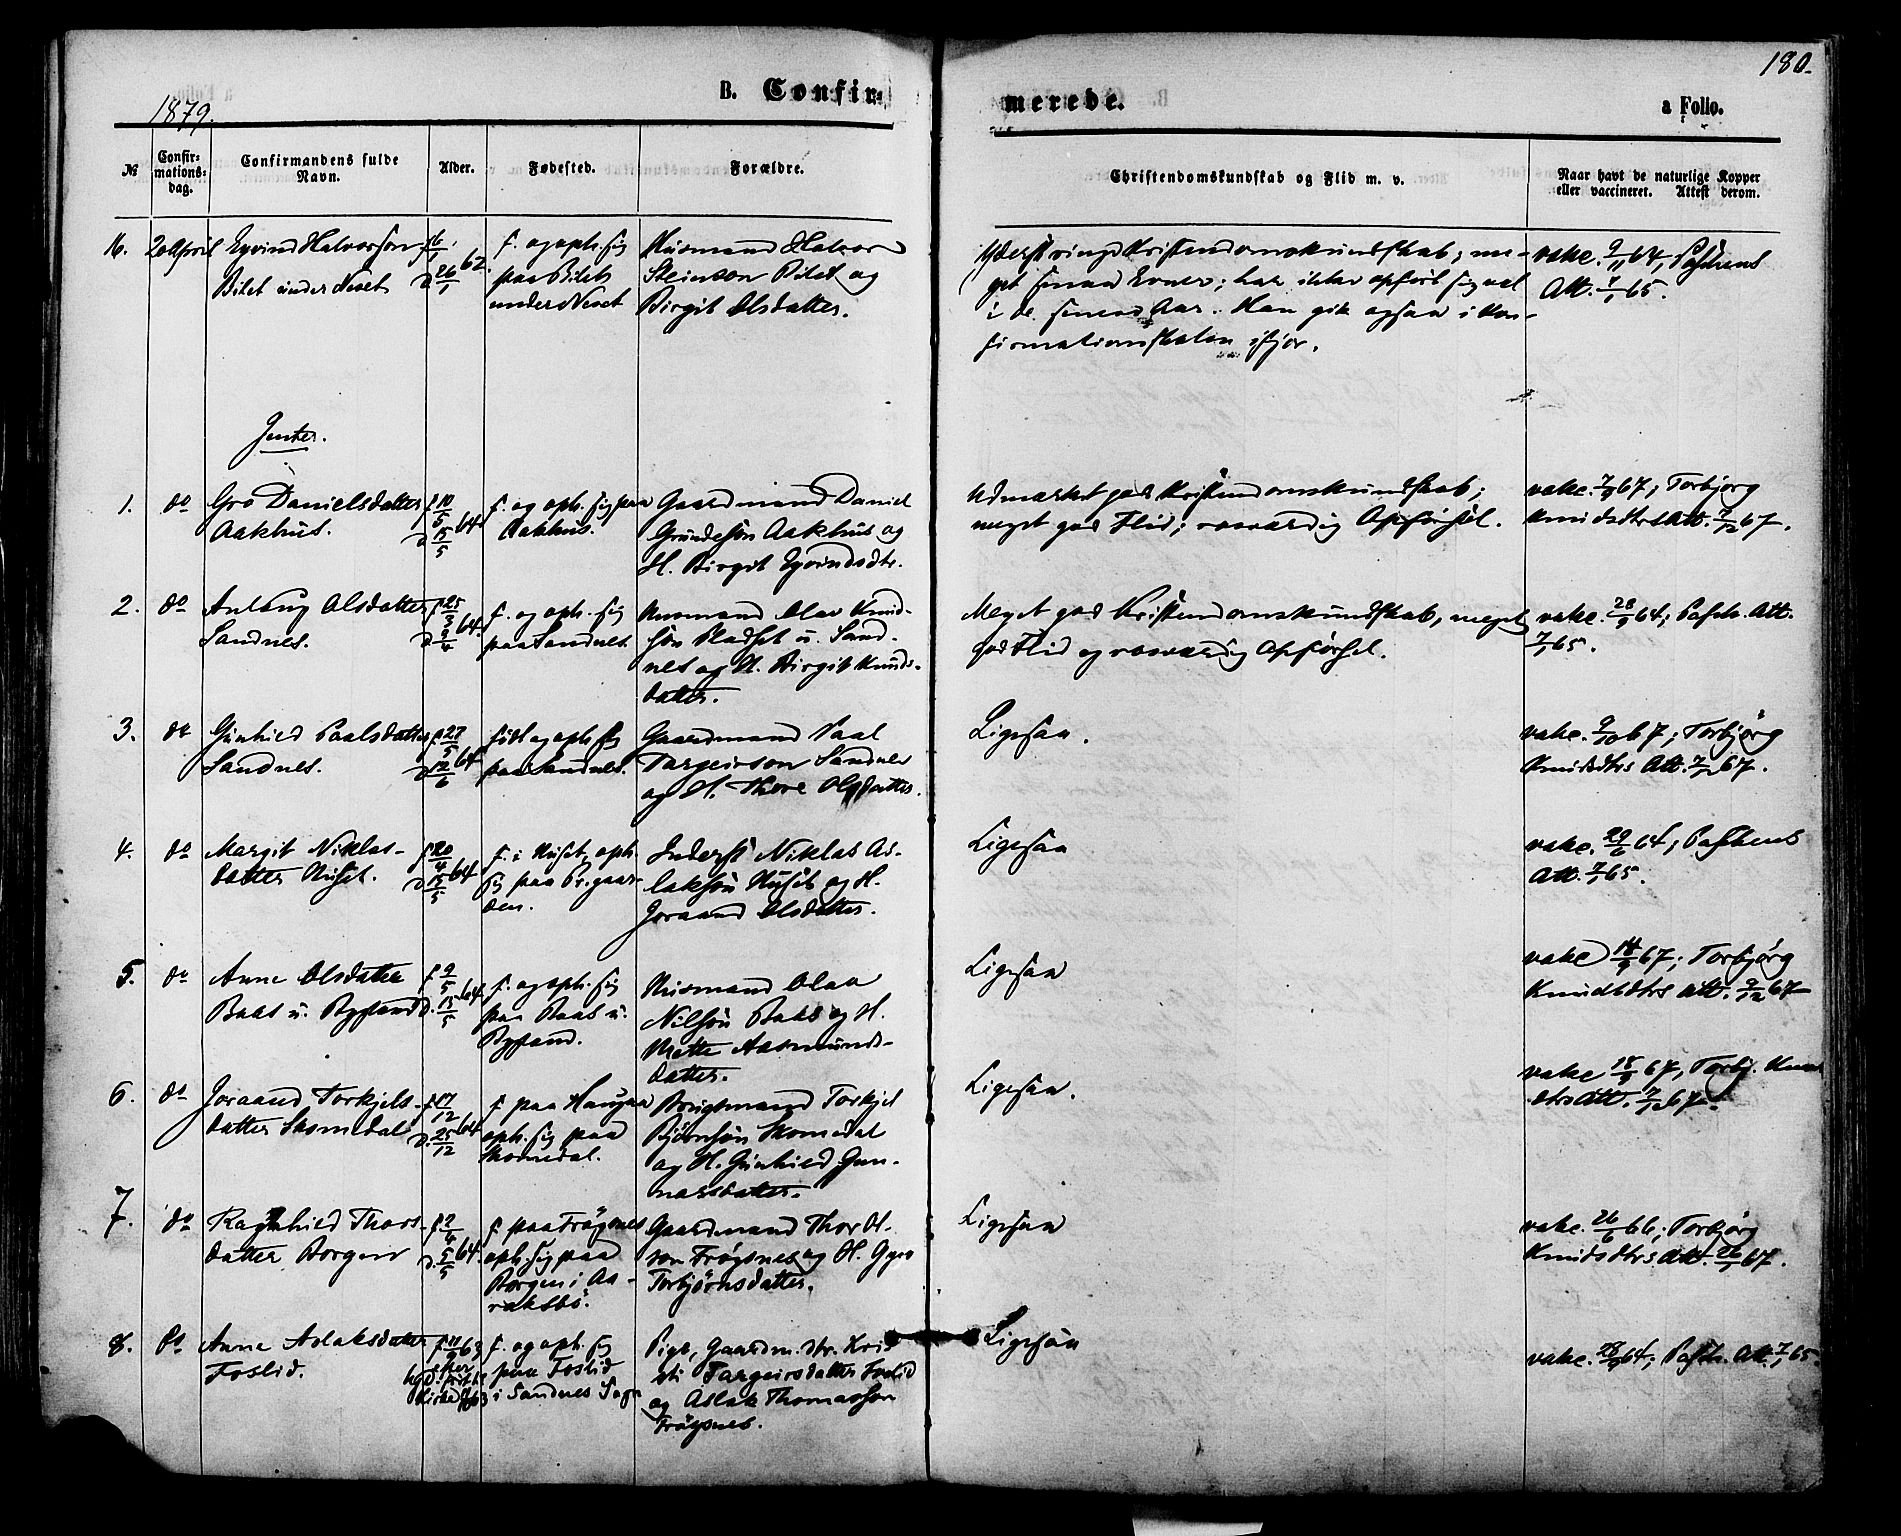 180.
1879.
B. Confir-
merede.
a Folio.
№
Confir-
mations-
dag.
Confirmandens fulde
Navn.
Alder.
Fødested.
Forældre.
Christendomskundskab og Flid m. v.
Naar havt de naturlige Kopper
eller vaccineret. Attest derom.
16.
20 April
Eyvind Halvorson
Bilet under Neset
f. 6/1
d. 26/1 62.
f. og oph. sig
paa Bilet
under Neset
Husmand Halvor
Steinson Bilet og
Birgit Olsdatter.
Yderst ringe Kristendomskundskab; me-
get smaa Evner; har ikke opført sig vel
i de senere Aar. Han gik ogsaa i Kon-
firmationsskolen ifjor.
vakc. 9/11 64, Pasthens
Att. 7/1 65.
Jenter.
1.
do
Gro Danielsdatter
Aakhus.
f. 10/5 64
d. 15/5
f. og oph. sig paa
Aakhus.
Gaardmand Daniel
Grundesøn Aakhus og
H. Birgit Eyvindsdtr.
Udmærket god Kristendomskundskab;
meget god Flid; rosværdig Opførsel.
vakc. 7/9 67; Torbjorg
Knudsdtrs Att. 7/12 67.
2.
do
Anlaug Olsdatter
Sandnes.
f. 25/3 64.
d. 9/4
f. og oph. sig
paa Sandnes.
Husmand Olav Knud-
søn Pladset u. Sand-
nes og H. Birgit Knuds-
datter.
Meget god Kristendomskundskab, meget
god Flid og rosværdig Opførsel.
vakc. 28/9 64; Pasth. Att.
7/1 65.
3.
do
Gunhild Paalsdatter
Sandnes.
f. 27/5 64
d. 12/6
født og oph. sig
paa Sandnes.
Gaardmand Paal
Targeirson Sandnes
og H. Thore Olsdatter.
Ligesaa.
vakc. 9/10 67; Torbjörg
Knudsdtrs Att. 7/12 67.
4.
do
Margit Niklas-
datter Huset.
f. 20/4 64
d. 15/5
f. i Huset, oph.
sig paa Pr.gaar-
den.
Inderst Niklas As-
laksøn Huset og H.
Joraand Olsdatter.
Ligesaa
vakc. 29/6 64; Pasthens
Att. 7/1 65.
5.
do
Anne Olsdatter
Baas u. Bygland
f. 9/5 64.
d. 15/5
f. og oph. sig
paa Baas u.
Bygland.
Husmand Olav
Nilsøn Baas og H.
Mette Aasmunds-
datter.
Ligesaa
vakc 14/9 67; Torbjörg
Knudsdtrs Att. 9/12 67
6.
do
Joraand Torkjels-
datter Skomedal
f. 17/12 64
d. 25/12
f. paa Haugaa
oph. sig paa
Skomedal.
Brugsmand Torkjel
Bjørnsøn Skomedal
og H. Gunhild Gun-
narsdatter.
Ligesaa.
vakc 18/9 67, Torbj. Knu
dtrs Att. 7/12 67.
7.
do
Ragnhild Thors-
datter Borgen
f. 2/4 64.
d. 5/5
f. paa Frøysnes
oph. sig paa
Borgen i Aa-
raksbø.
Gaardmand Thor O.
son Frøysnes og H. Gyro
Torbjörnsdatter.
Ligesaa
vakc. 26/6 66; Torbjørg
Knudsdtrs Att. 26/1 67.
8.
do
Anne Aslaksdatter
Foslid.
f. og oph. sig
paa Foslid
i Sandnes Sogn
Pige, Gaardm. dtr. Kri
sti Targeirsdatter Foslid
og Aslak Thomasson
Frøysnes.
Ligesaa
vakc. 28/9 64; Pasth. Att. 7/1 65.